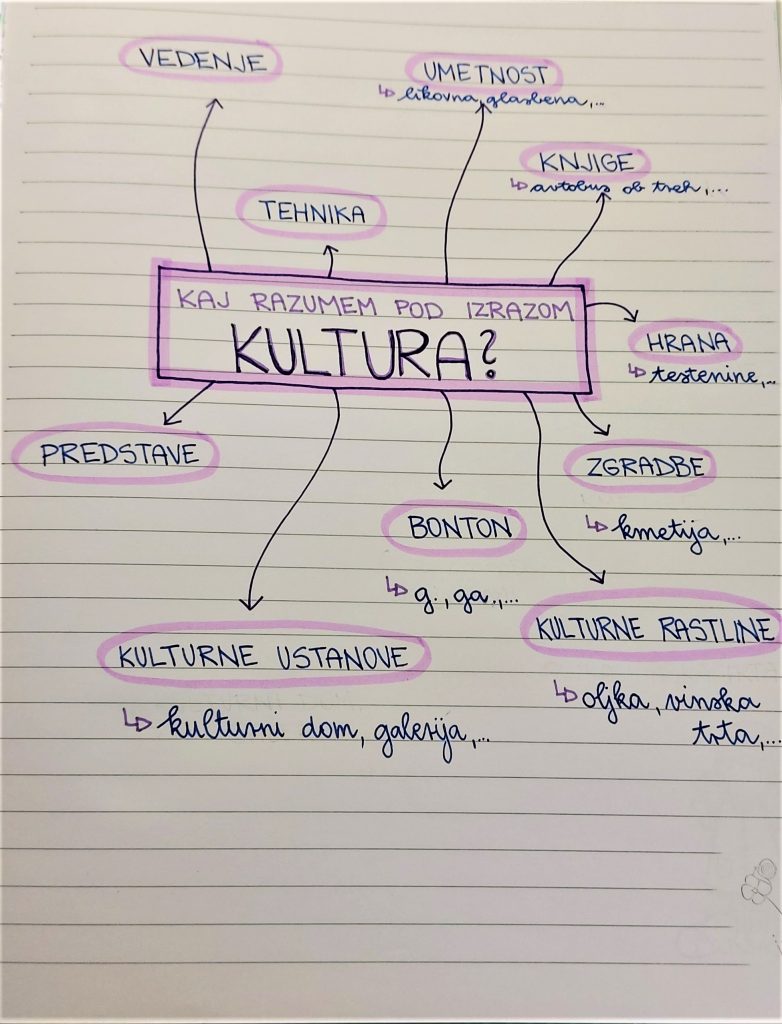 VEDENJE
UMETNOST
↳ likovna, glasbena,...
KNJIGE
↳ avtobus ob treh,...
TEHNIKA
KAJ RAZUMEM POD IZRAZOM
KULTURA?
HRANA
↳ testenine,...
PREDSTAVE
ZGRADBE
↳ kmetija,...
BONTON
↳ g., ga.,...
KULTURNE RASTLINE
↳ oljka, vinska
trta,...
KULTURNE USTANOVE
↳ kulturni dom, galerija,...